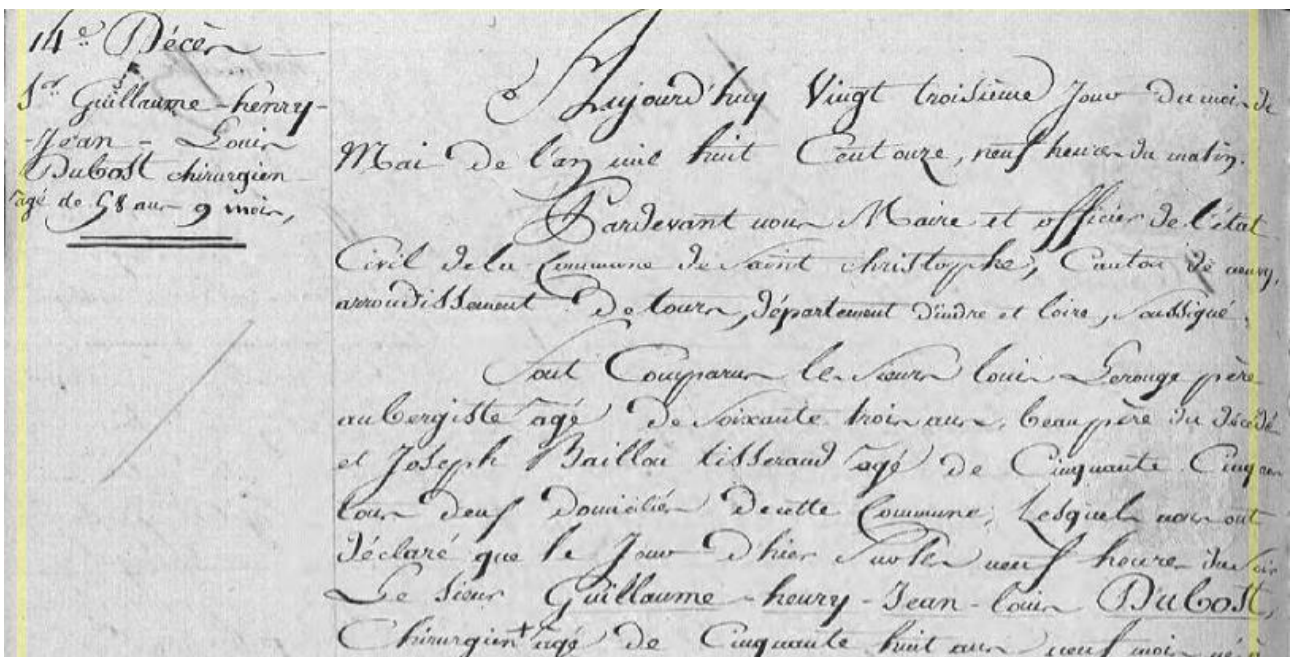 14e Décès
Sr Guillaume-henry-
-Jean-Louis
Dubost chirurgien
agé de 58 ans 9 mois,
Aujourd'huy Vingt troisieme Jour du mois de
Mai de l'an mil huit Cent onze, neuf heures du matin.
Pardevant nous Maire et officier de l'état
Civil de la Commune de Saint christophe, Canton de neuvy,
arrondissement de tours, département d'indre et loire, Soussigné.
Sont Comparus les Sieurs louis Lerouge père
aubergiste agé de Soixante trois ans, beau père du décédé
et Joseph Baillou tisserand agé de Cinquante Cinq ans
tous deux domiciliés de cette Commune, Lesquels nous ont
déclaré que le Jour d'hier Sur les neuf heures du Soir
Le Sieur Guillaume-henry-Jean-louis DUBOST,
Chirurgien + agé de Cinquante huit ans neuf mois né à